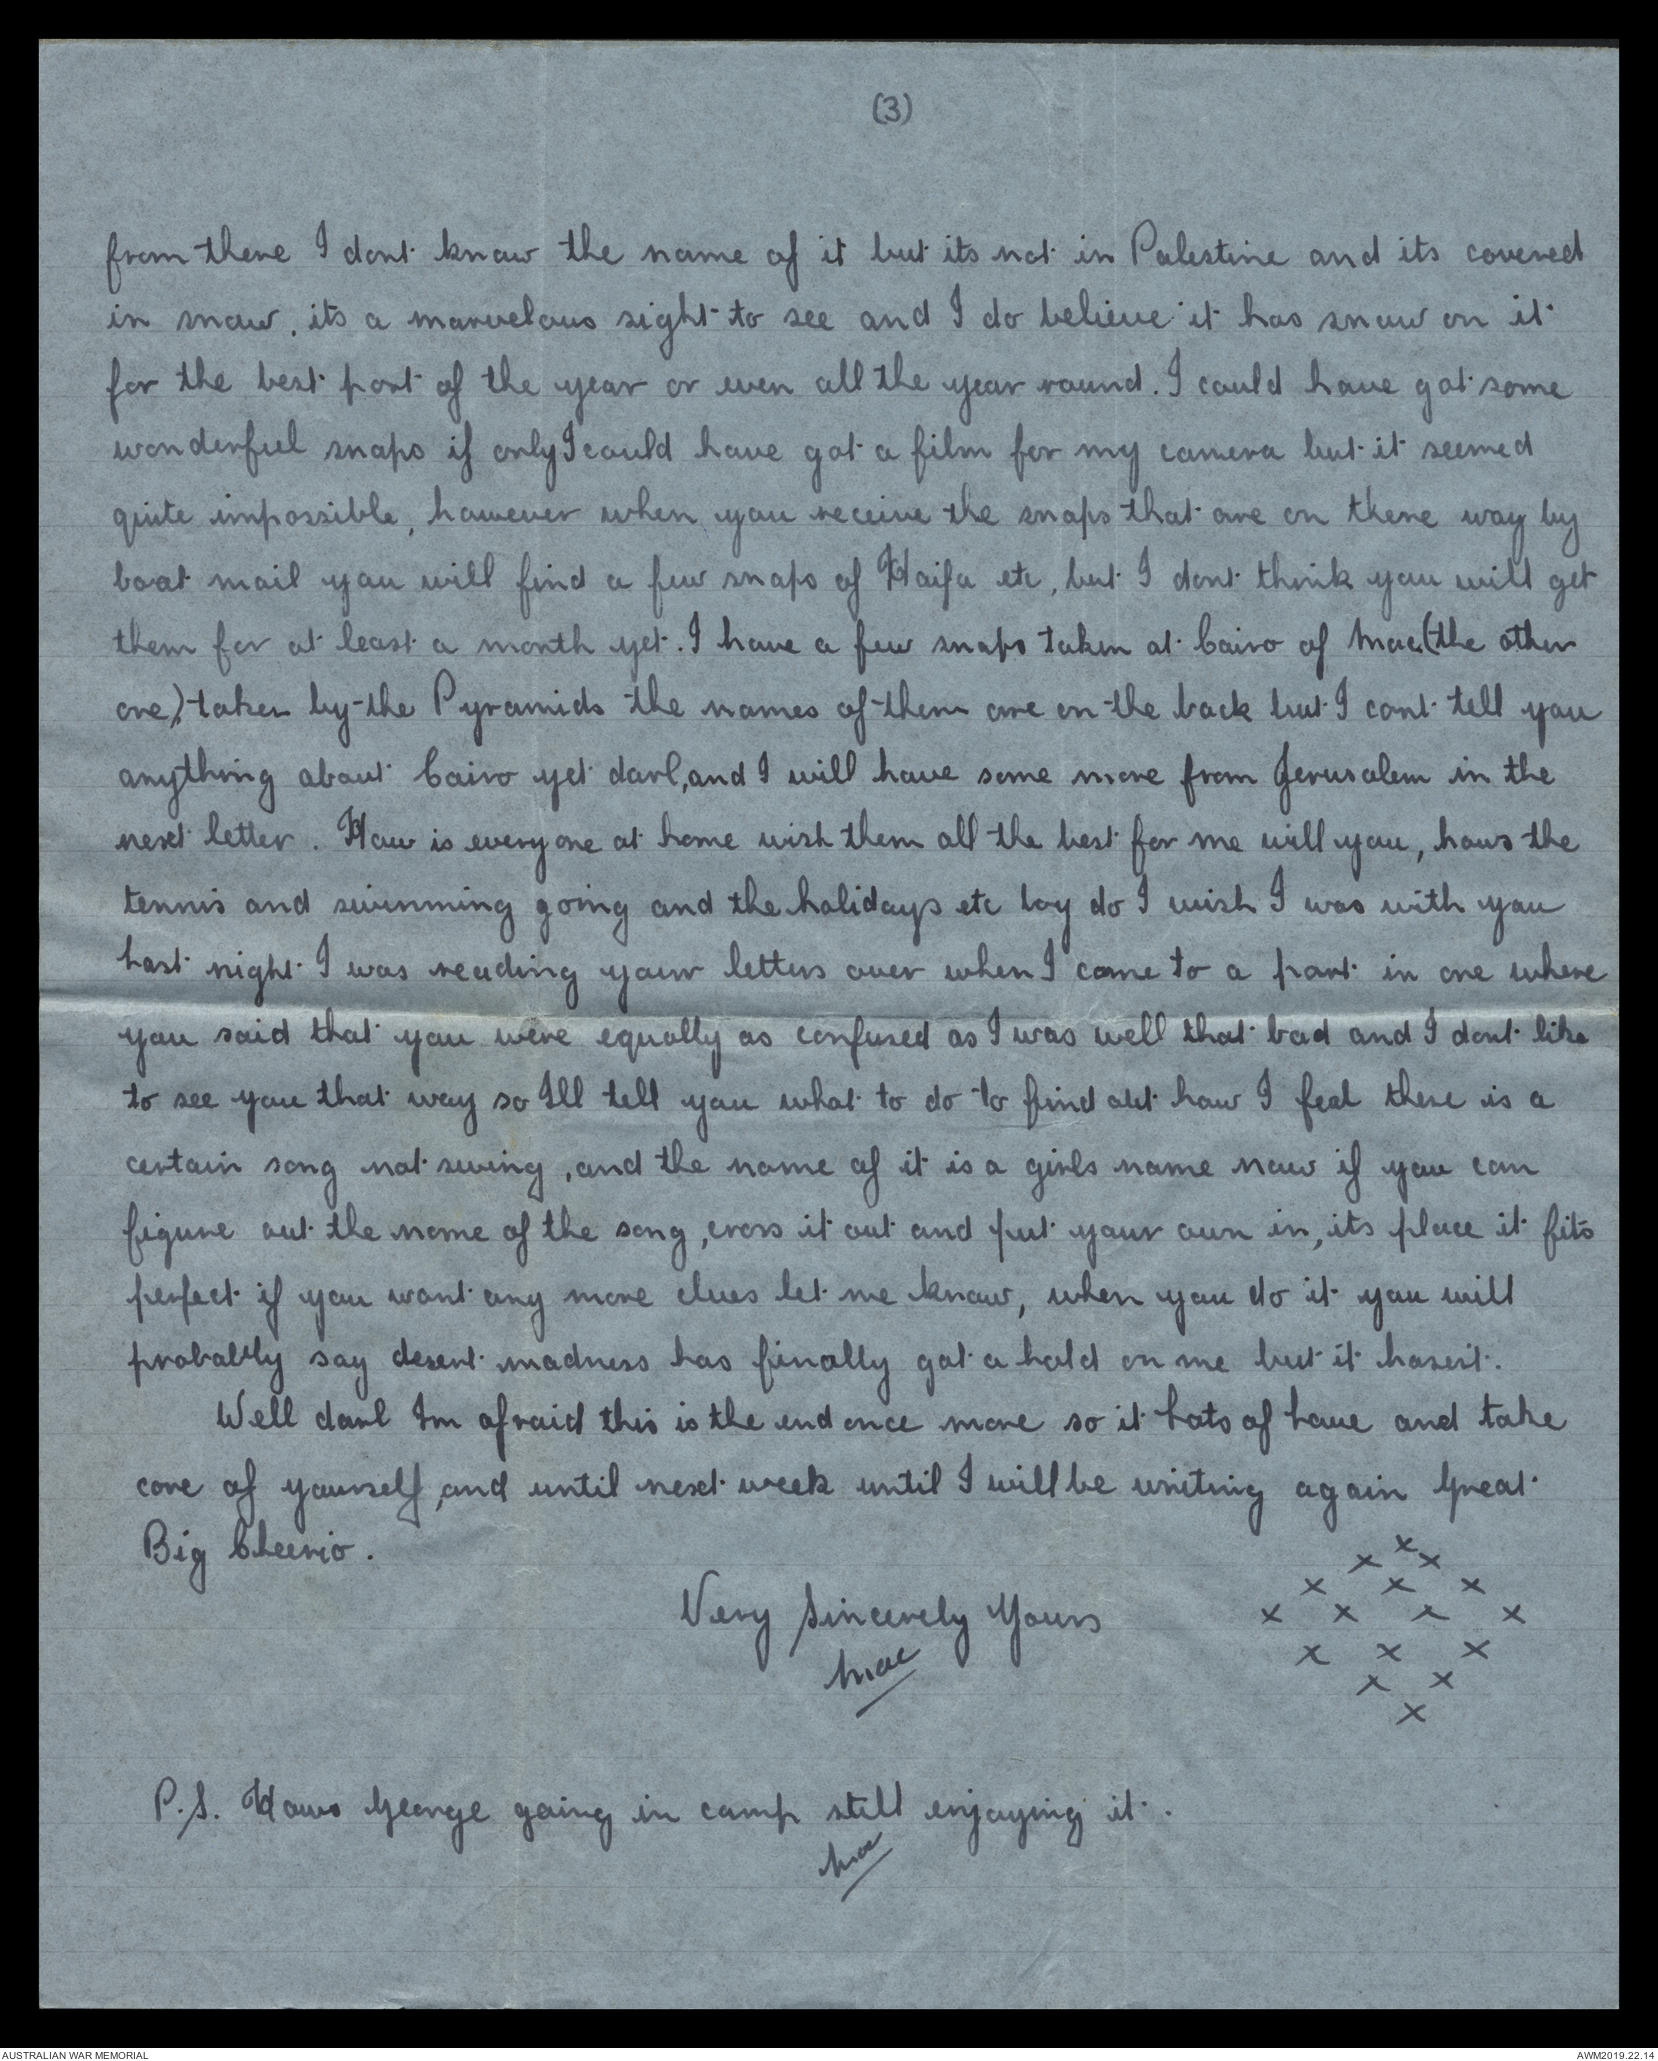 (3)
from there I dont know the name of it but its not in Palestine and its covered
in snow, its a marvelous sight to see and I do believe it has snow on it
for the best part of the year or even all the year round. I could have got some
wonderful snaps if only I could have got a film for my camera but it seemed
quite impossible, however when you receive the snaps that are on there way by
boat mail you will find a few snaps of Haifa etc, but I dont think you will get
them for at least a month yet. I have a few snaps taken at Cairo of Mac (the other
one), taken by the Pyramids the names of them are on the back but I cant tell you
anything about Cairo yet darl, and I will have some more from Jerusalem in the
next letter. How is everyone at home wish them all the best for me will you, hows the
tennis and swimming going and the holidays etc boy do I wish I was with you
Last night I was reading your letters over when I came to a part in one where
you said that you were equally as confused as I was well that bad and I dont like
to see you that way so Ill tell you what to do to find out how I feel there is a
certain song not swing, and the name of it is a girls name now if you can
figure out the name of the song, cross it out and put your own in, its place it fits
perfect if you want any more clues let me know, when you do it you will
probably say desert madness has finally got a hold on me but it hasen't.
Well darl Im afraid this is the end once more so it Lots of Love and take
care of yourself, and until next week until I will be writing again Great
Big Cheerio.
Very Sincerely Yours
Mac
x
x x
x x x
x x x x
x x x
x x
x
P.S. Hows George going in camp still enjoying it.
Mac
AUSTRALIAN WAR MEMORIAL
AWM2019.22.14